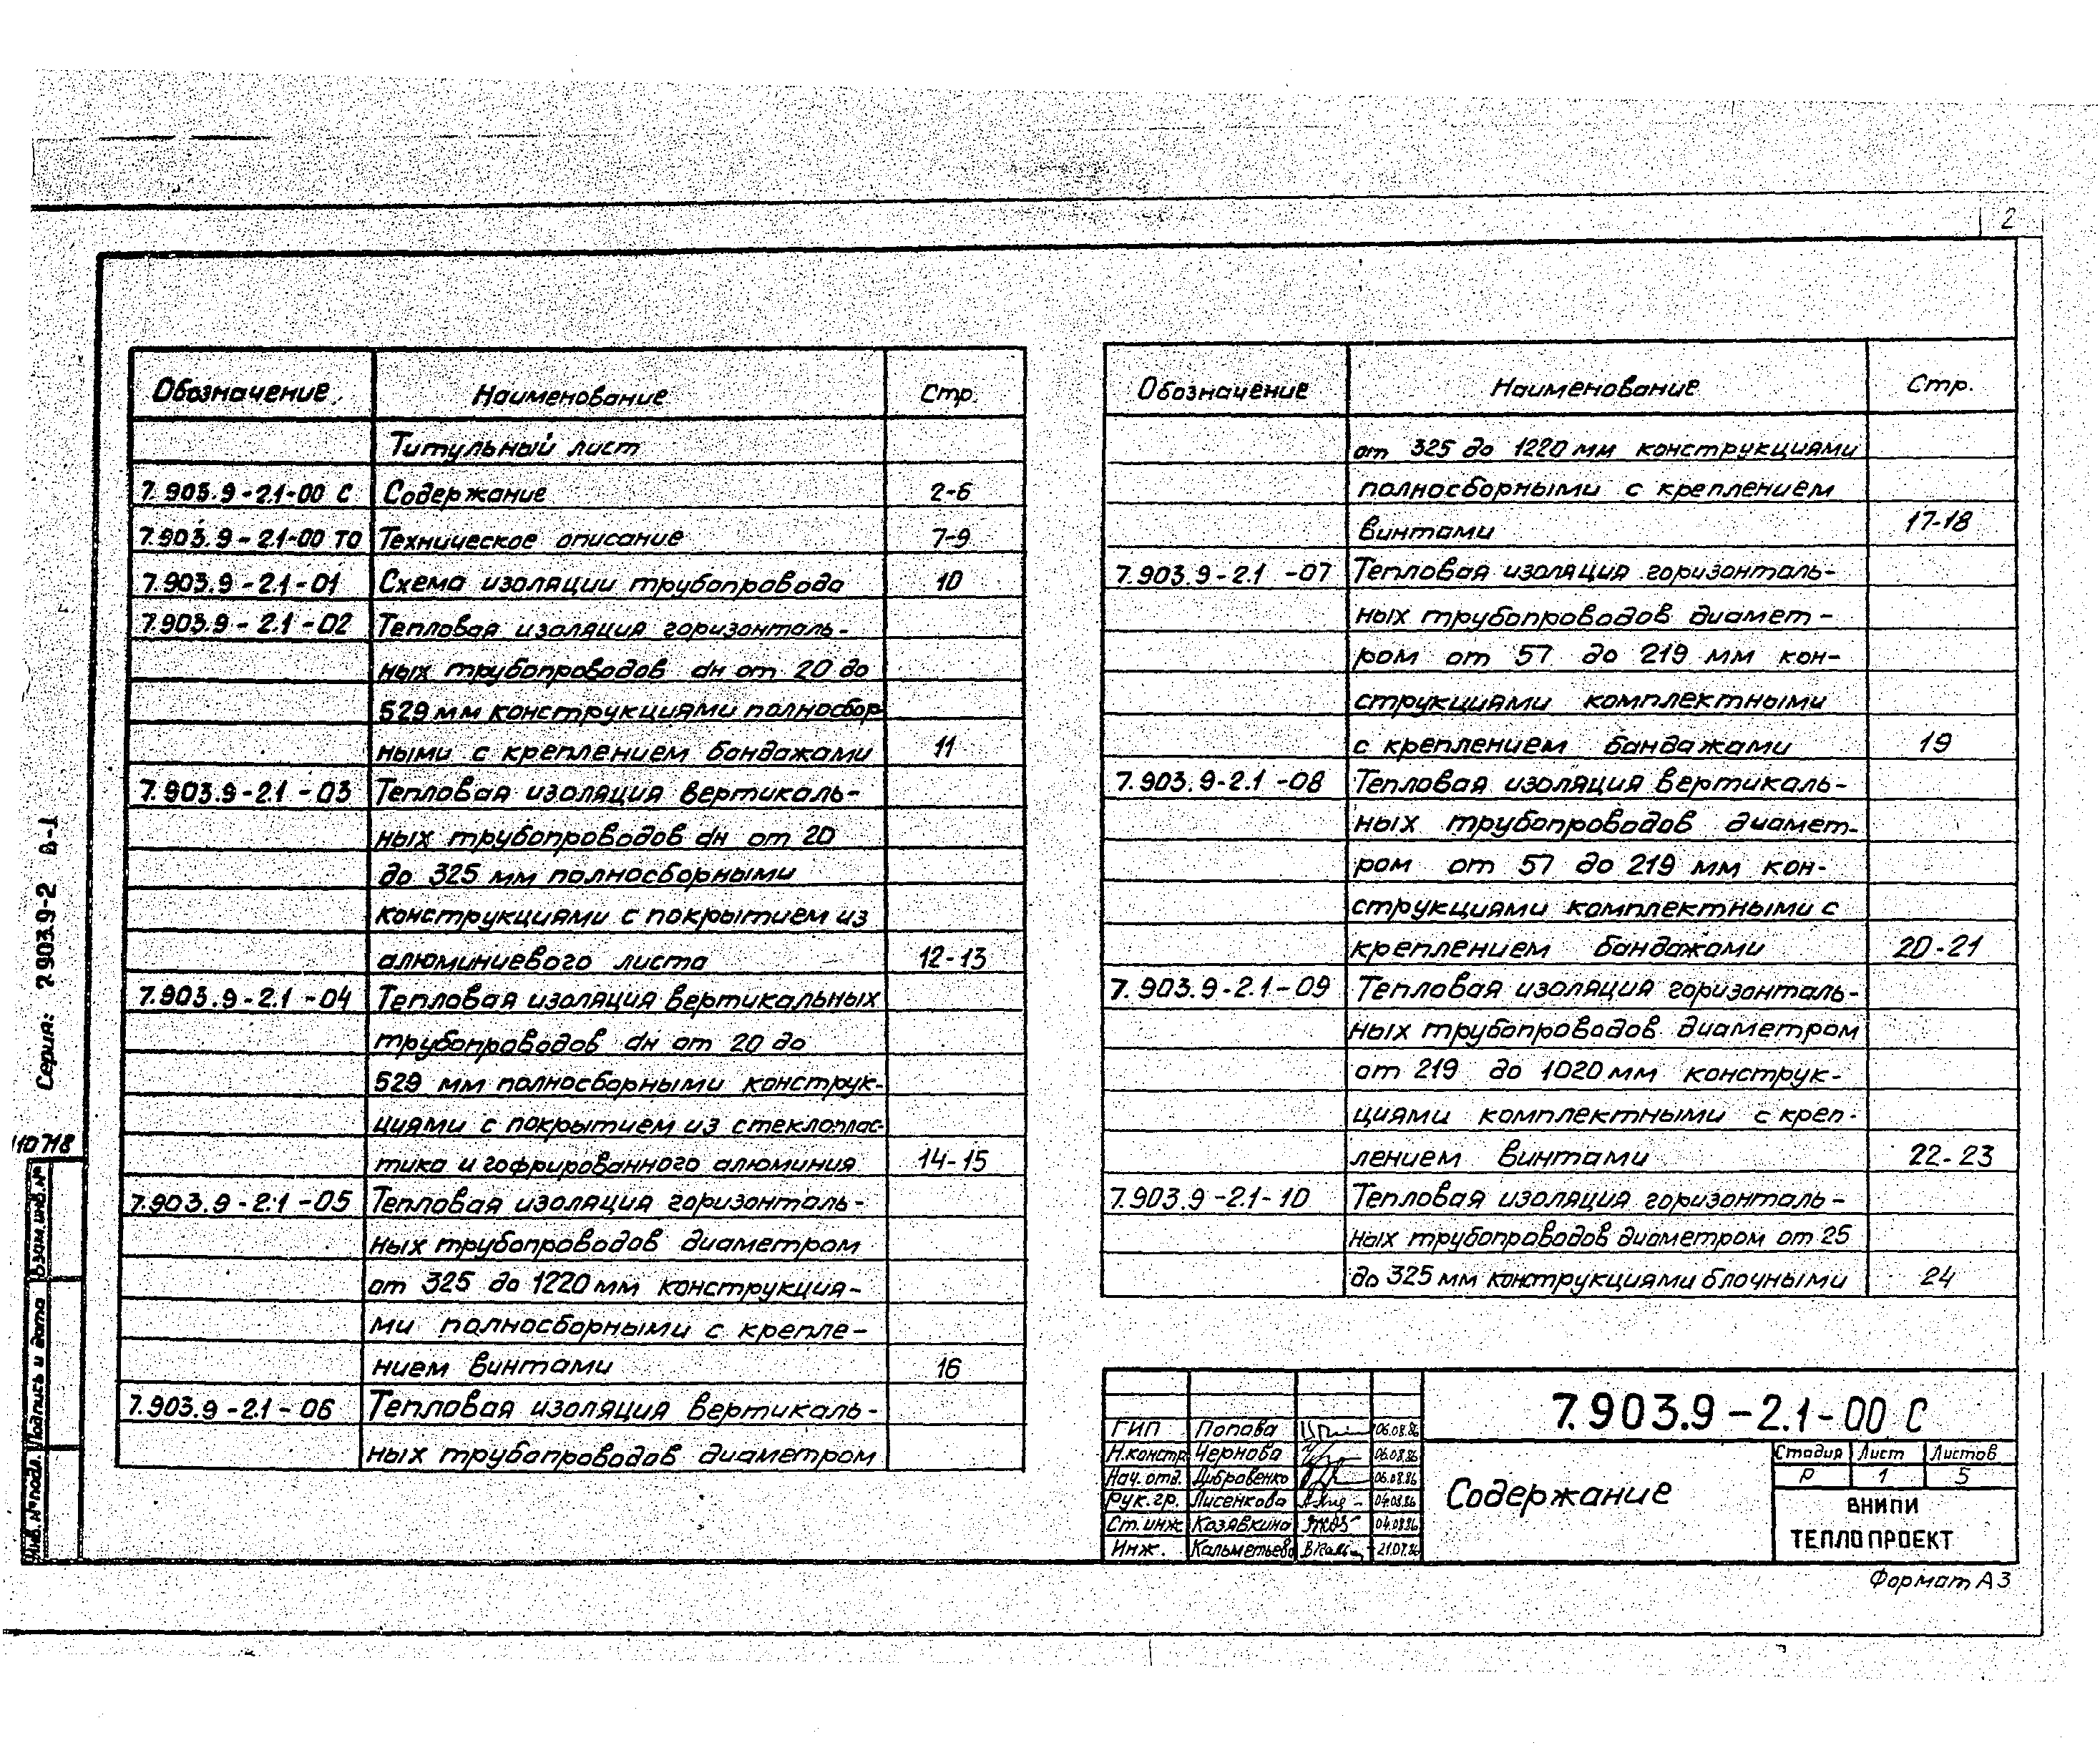 2
Обозначение Наименование Стр.
Титульный лист
7.903.9-2.1-00 С Содержание 2-6
7.903.9-2.1-00 ТО Техническое описание 7-9
7.903.9-2.1-01 Схема изоляции трубопровода 10
7.903.9-2.1-02 Тепловая изоляция горизонталь-
ных трубопроводов dн от 20 до
529 мм конструкциями полносбор
ными с креплением бандажами 11
7.903.9-2.1-03 Тепловая изоляция вертикаль-
ных трубопроводов dн от 20
до 325 мм полносборными
конструкциями с покрытием из
алюминиевого листа 12-13
7.903.9-2.1-04 Тепловая изоляция вертикальных
трубопроводов dн от 20 до
529 мм полносборными конструк-
циями с покрытием из стеклоплас-
тика и гофрированного алюминия 14-15
7.903.9-2.1-05 Тепловая изоляция горизонталь-
ных трубопроводов диаметром
от 325 до 1220 мм конструкция-
ми полносборными с крепле-
нием винтами 16
7.903.9-2.1-06 Тепловая изоляция вертикаль-
ных трубопроводов диаметром
Обозначение Наименование Стр.
от 325 до 1220 мм конструкциями
полносборными с креплением
винтами 17-18
7.903.9-2.1-07 Тепловая изоляция горизонталь-
ных трубопроводов диамет-
ром от 57 до 219 мм кон-
струкциями комплектными
с креплением бандажами 19
7.903.9-2.1-08 Тепловая изоляция вертикаль-
ных трубопроводов диамет-
ром от 57 до 219 мм кон-
струкциями комплектными с
креплением бандажами 20-21
7.903.9-2.1-09 Тепловая изоляция горизонталь-
ных трубопроводов диаметром
от 219 до 1020 мм конструк-
циями комплектными с креп-
лением винтами 22-23
7.903.9-2.1-10 Тепловая изоляция горизонталь-
ных трубопроводов диаметром от 25
до 325 мм конструкциями блочными 24
Серия: 7.903.9-2 В-1
110718
Взам.инв.№
Подпись и дата
Инв.№ подл.
7.903.9-2.1-00 С
ГИП Попова 06.08.86
Н.контр Чернова 06.08.86
Нач.отд. Дибровенко 06.08.86
Рук.гр. Лисенкова 04.08.86
Ст.инж Козявкина 04.08.86
Инж. Кальметьева 21.07.86
Содержание
Стадия Лист Листов
Р 1 5
ВНИПИ
ТЕПЛОПРОЕКТ
Формат А3